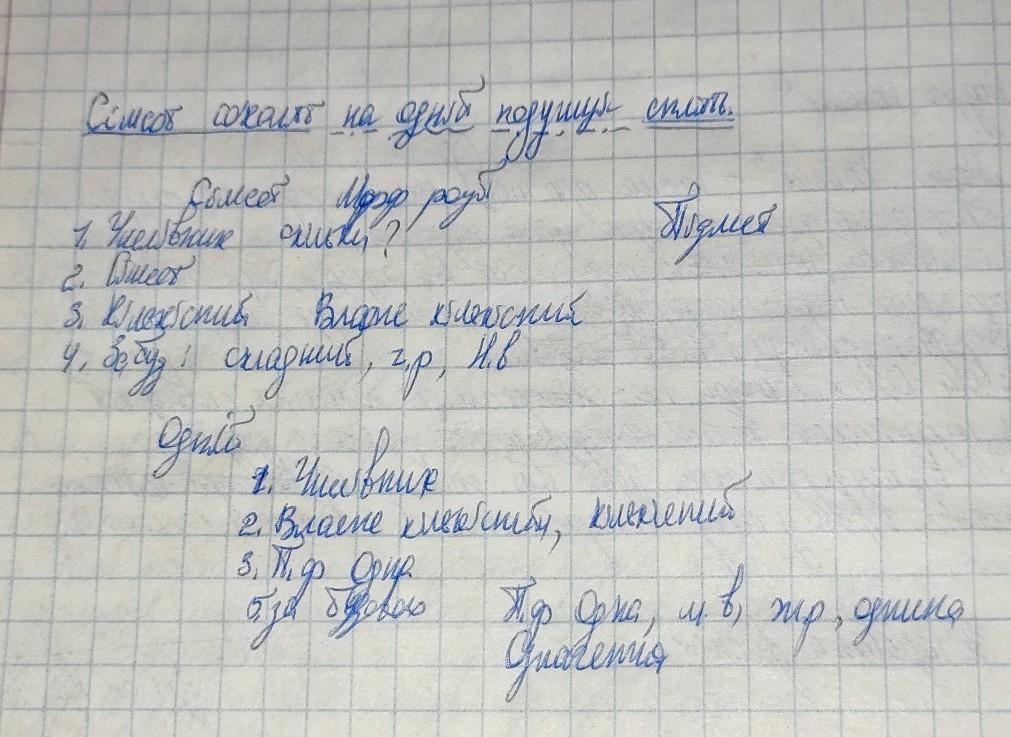 Сімсот соколів на одній подушці сплять.
Сімсот Морф розб
1. Числівник скільки? Підмет
2. Сімсот
3. Кількісний Власне кількісний
4. За буд: складний, ч.р, Н.в
Одній
1. Числівник
2. Власне кількісний, кількісний
3. П.ф Одна
за будовою П.ф Одна, м.в, ж.р, однина
Означення